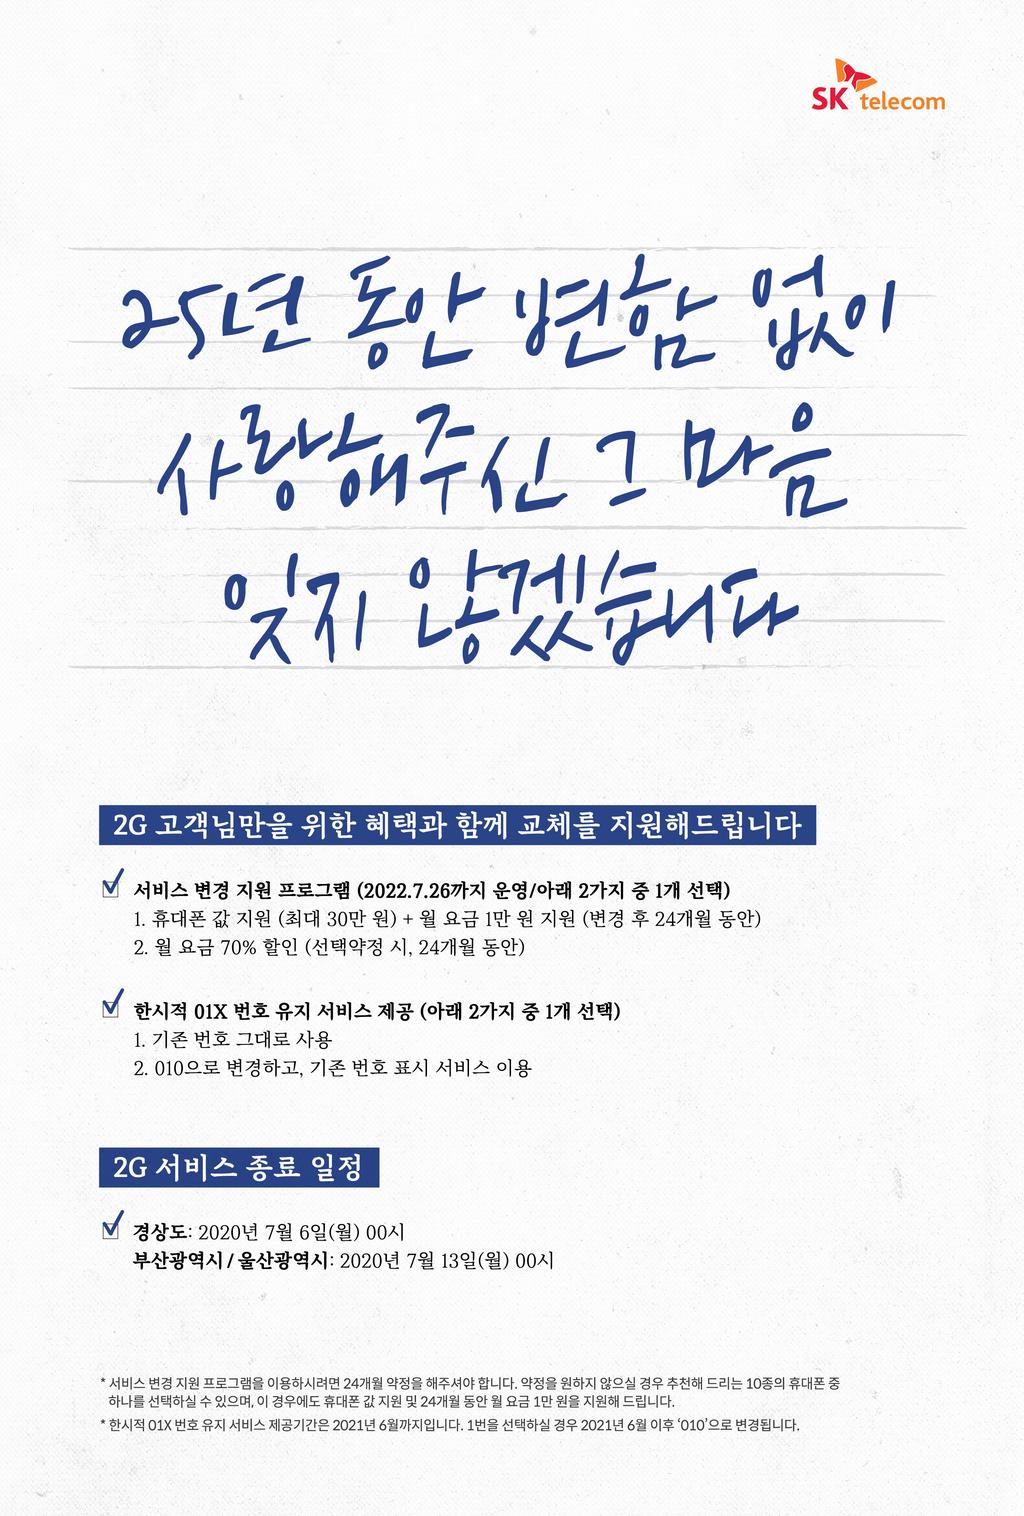 SK telecom
25년 동안 변함 없이
사랑해주신 그 마음
잊지 않겠습니다
2G 고객님만을 위한 혜택과 함께 교체를 지원해드립니다
서비스 변경 지원 프로그램 (2022.7.26까지 운영/아래 2가지 중 1개 선택)
1. 휴대폰 값 지원 (최대 30만 원) + 월 요금 1만 원 지원 (변경 후 24개월 동안)
2. 월 요금 70% 할인 (선택약정 시, 24개월 동안)
한시적 01X 번호 유지 서비스 제공 (아래 2가지 중 1개 선택)
1. 기존 번호 그대로 사용
2. 010으로 변경하고, 기존 번호 표시 서비스 이용
2G 서비스 종료 일정
경상도: 2020년 7월 6일(월) 00시
부산광역시 / 울산광역시: 2020년 7월 13일(월) 00시
* 서비스 변경 지원 프로그램을 이용하시려면 24개월 약정을 해주셔야 합니다. 약정을 원하지 않으실 경우 추천해 드리는 10종의 휴대폰 중
하나를 선택하실 수 있으며, 이 경우에도 휴대폰 값 지원 및 24개월 동안 월 요금 1만 원을 지원해 드립니다.
* 한시적 01X 번호 유지 서비스 제공기간은 2021년 6월까지입니다. 1번을 선택하실 경우 2021년 6월 이후 ‘010’으로 변경됩니다.